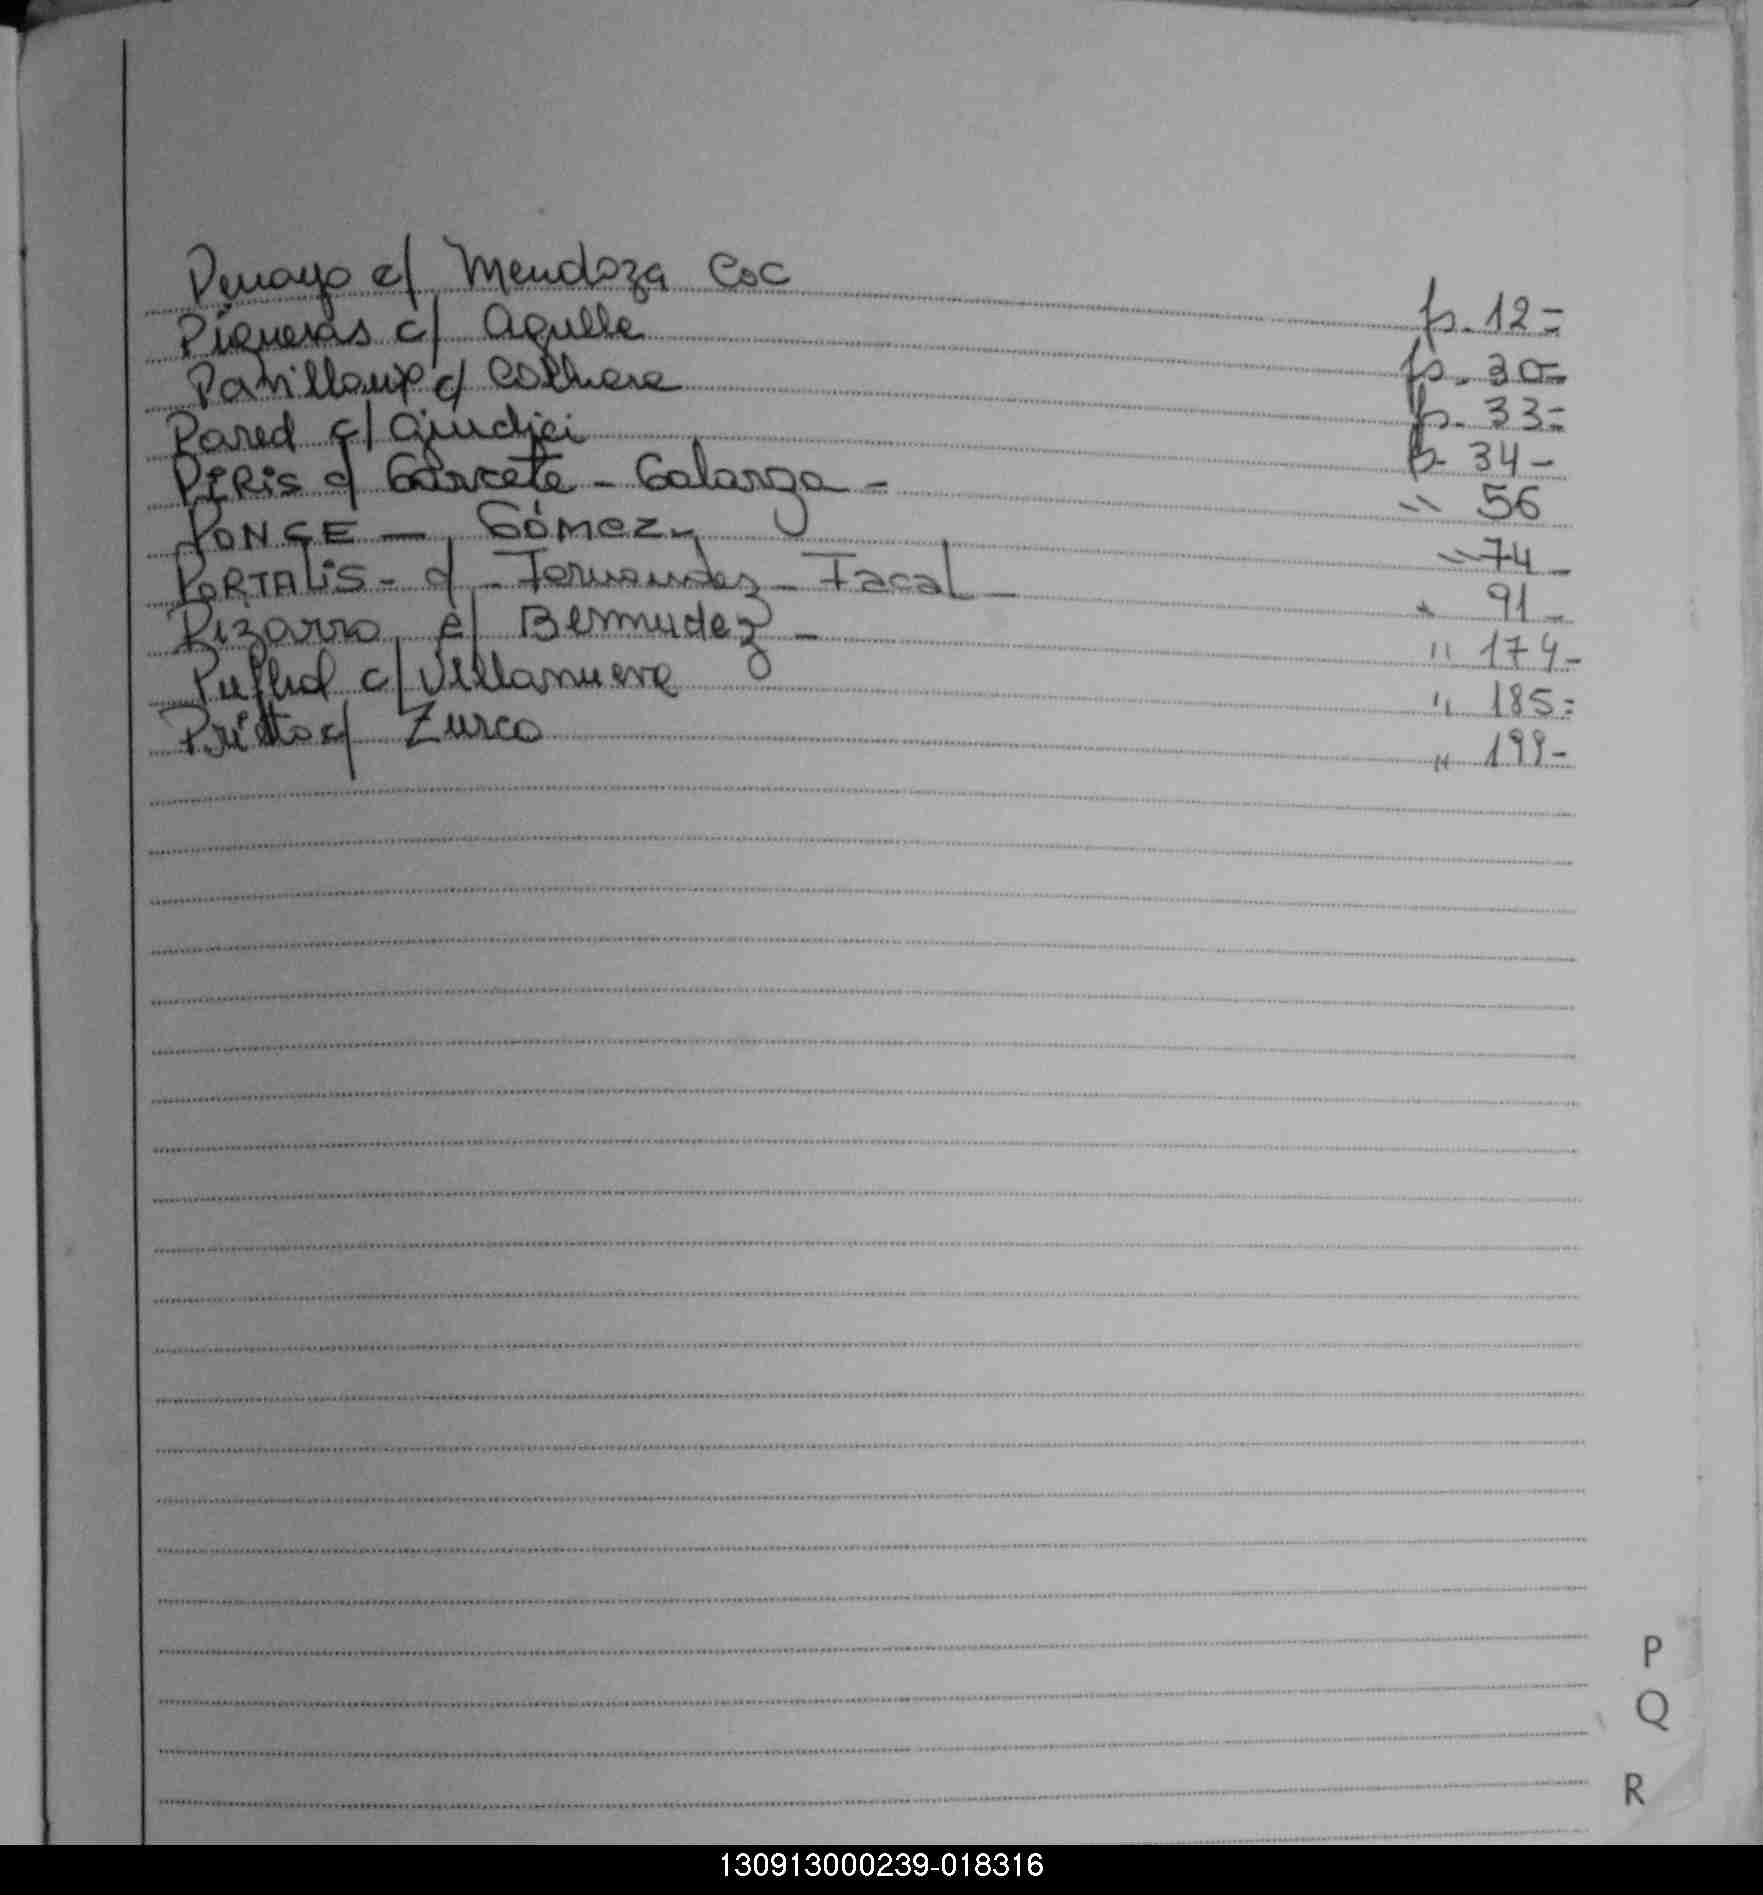 Penayo c/ Mendoza Coc fs. 12=
Piqueras c/ Aquelle fs. 30=
Pavilloux c/ Colhere fs. 33=
Pared c/ Giudici fs. 34-
PIRIS c/ Garcete - Galarza - " 56
PONCE - GÓMEZ - " 74-
PORTALIS - c/ - Fernandez - Facal - " 91-
Pizarro c/ Bermudez - " 174-
c/ Villanueva " 185=
c/ Zurco " 199-
P
Q
R
130913000239-018316